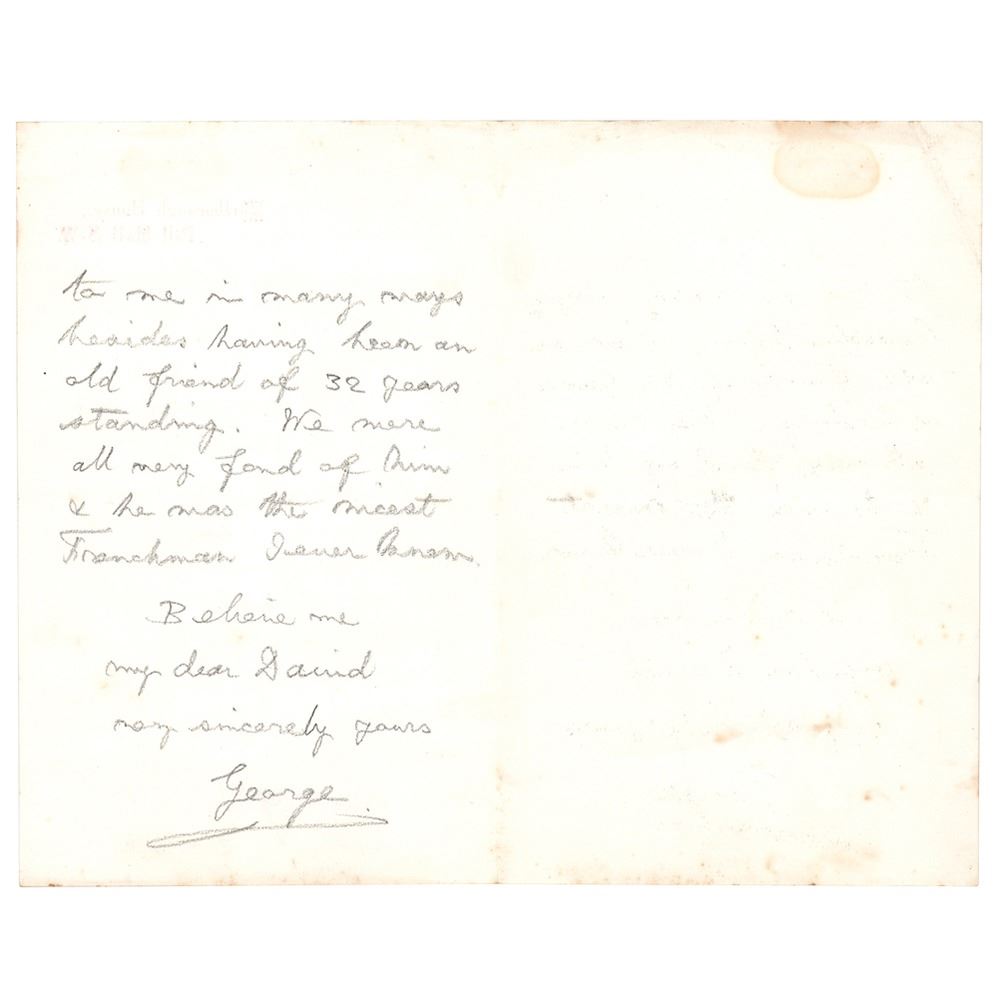 Marlborough House,
Pall Mall S.W.
to me in many ways
besides having been an
old friend of 32 years
standing. We were
all very fond of him
& he was the nicest
Frenchman I ever knew.
Believe me
my dear David
very sincerely yours
George